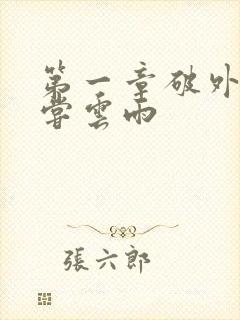 第一章破外
嘗雲雨
張六郎